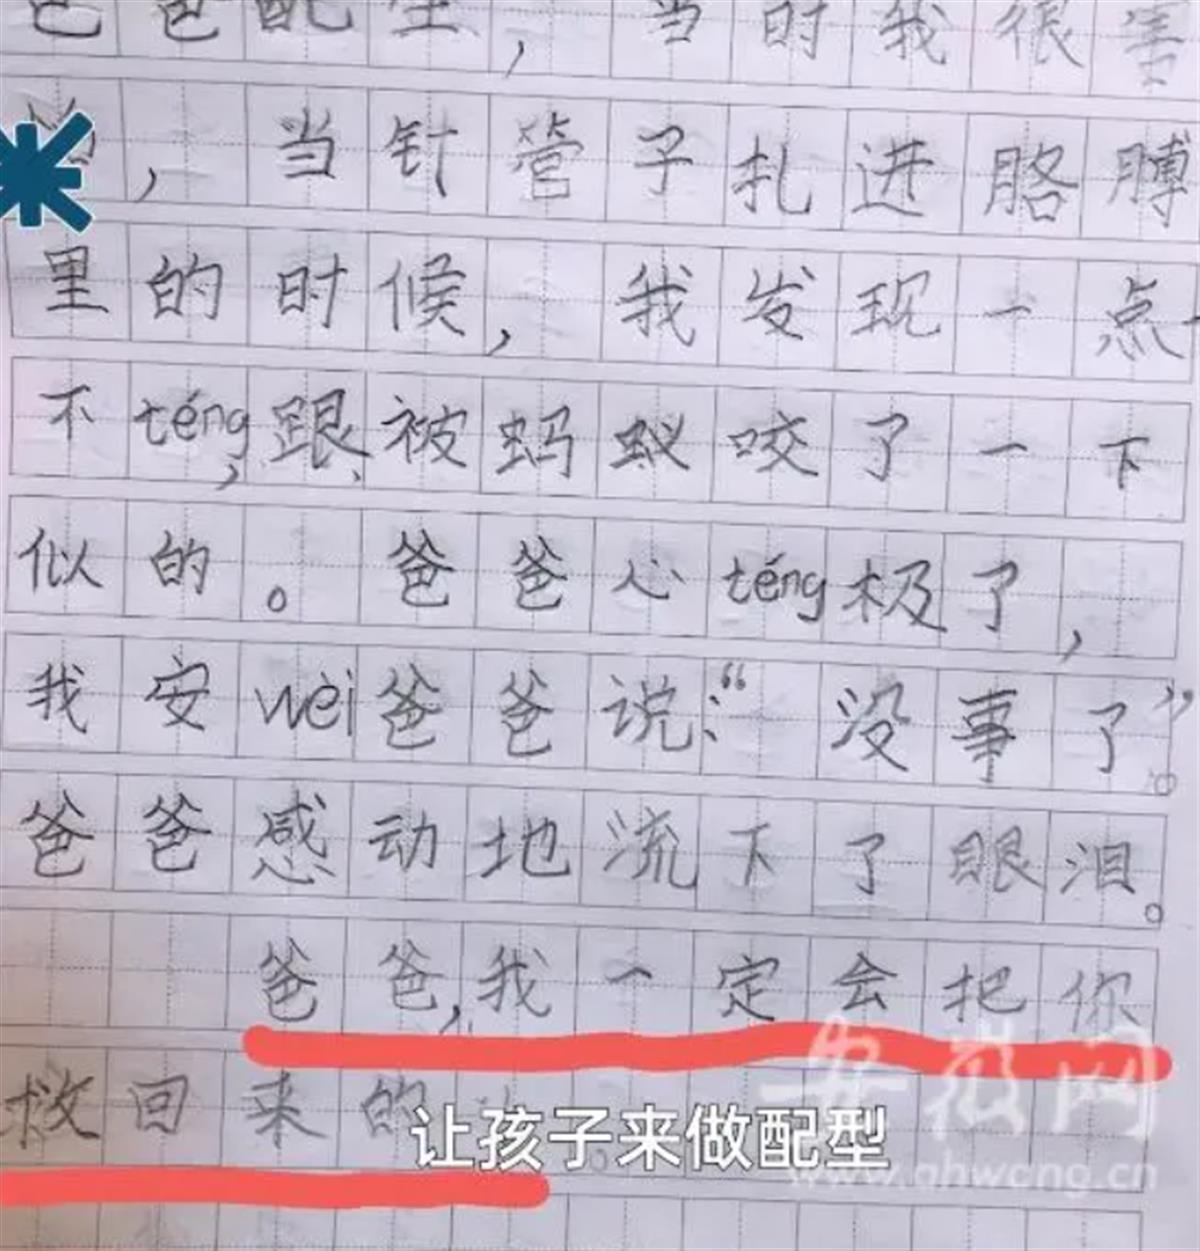 爸爸配型，当时我很害
怕，当针管子扎进胳膊
里的时候，我发现一点
不téng，跟被蚂蚁咬了一下
似的。爸爸心téng极了，
我安wèi爸爸说：“没事了”。
爸爸感动地流下了眼泪。
爸爸，我一定会把你
救回来的
让孩子来做配型
安徽网
www.ahwang.cn